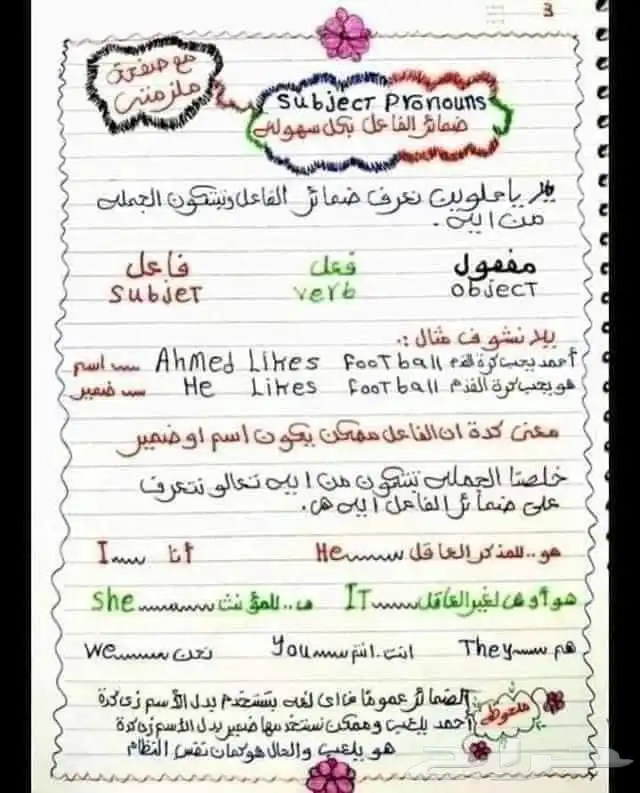 3
مع صفحة
ملزمتى
Subject Pronouns
ضمائر الفاعل بكل سهولة
يلا ياحلوين نعرف ضمائر الفاعل وبتتكون الجملة
من ايه.
فاعل فعل مفعول
Subjet verb object
يلا نشوف مثال :.
اسم Ahmed Likes Football أحمد يحب كرة القدم
ضمير He Likes Football هو يحب كرة القدم
معنى كدة ان الفاعل ممكن يكون اسم او ضمير
خلصنا الجملة بتتكون من ايه تعالو نتعرف
على ضمائر الفاعل ايه هى.
I أنا He هو..للمذكر العاقل
She هى..للمؤنث IT هو أو هى لغير العاقل
We نحن You انت.انتم They هم
ملحوظة
الضمائر عموما فى اى لغه بتستخدم بدل الأسم زى كدة
أحمد يلعب وممكن نستخدمها ضمير بدل الأسم زى كدة
هو يلعب والحال هو كمان نفس النظام
حراج